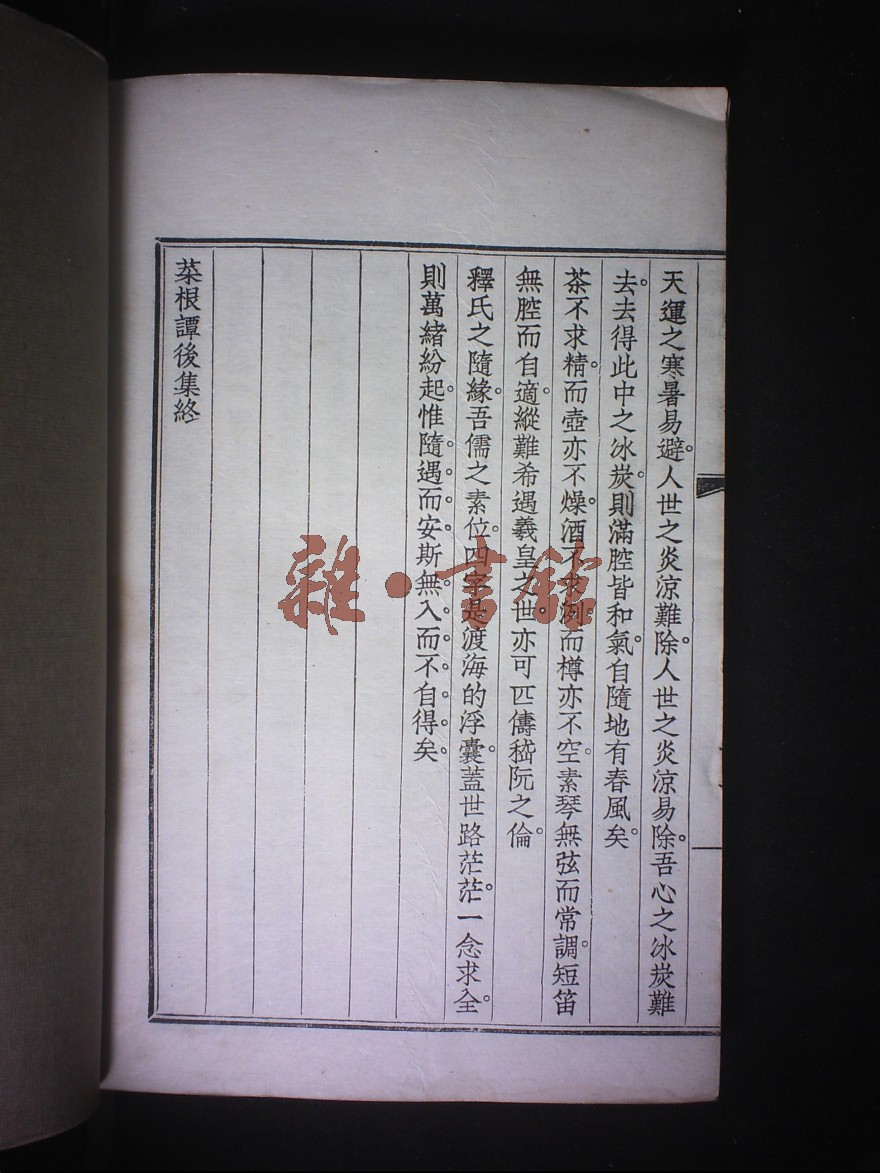 天運之寒暑易避。人世之炎涼難除。人世之炎涼易除。吾心之冰炭難
去。去得此中之冰炭。則滿腔皆和氣。自隨地有春風矣。
茶不求精。而壺亦不燥。酒不求冽。而樽亦不空。素琴無弦而常調。短笛
無腔而自適。縱難希遇羲皇之世。亦可匹儔嵇阮之倫。
釋氏之隨緣。吾儒之素位。四字是渡海的浮囊。蓋世路茫茫。一念求全。
則萬緒紛起。惟隨遇而安。斯無入而不自得矣。
菜根譚後集終
雜·書館